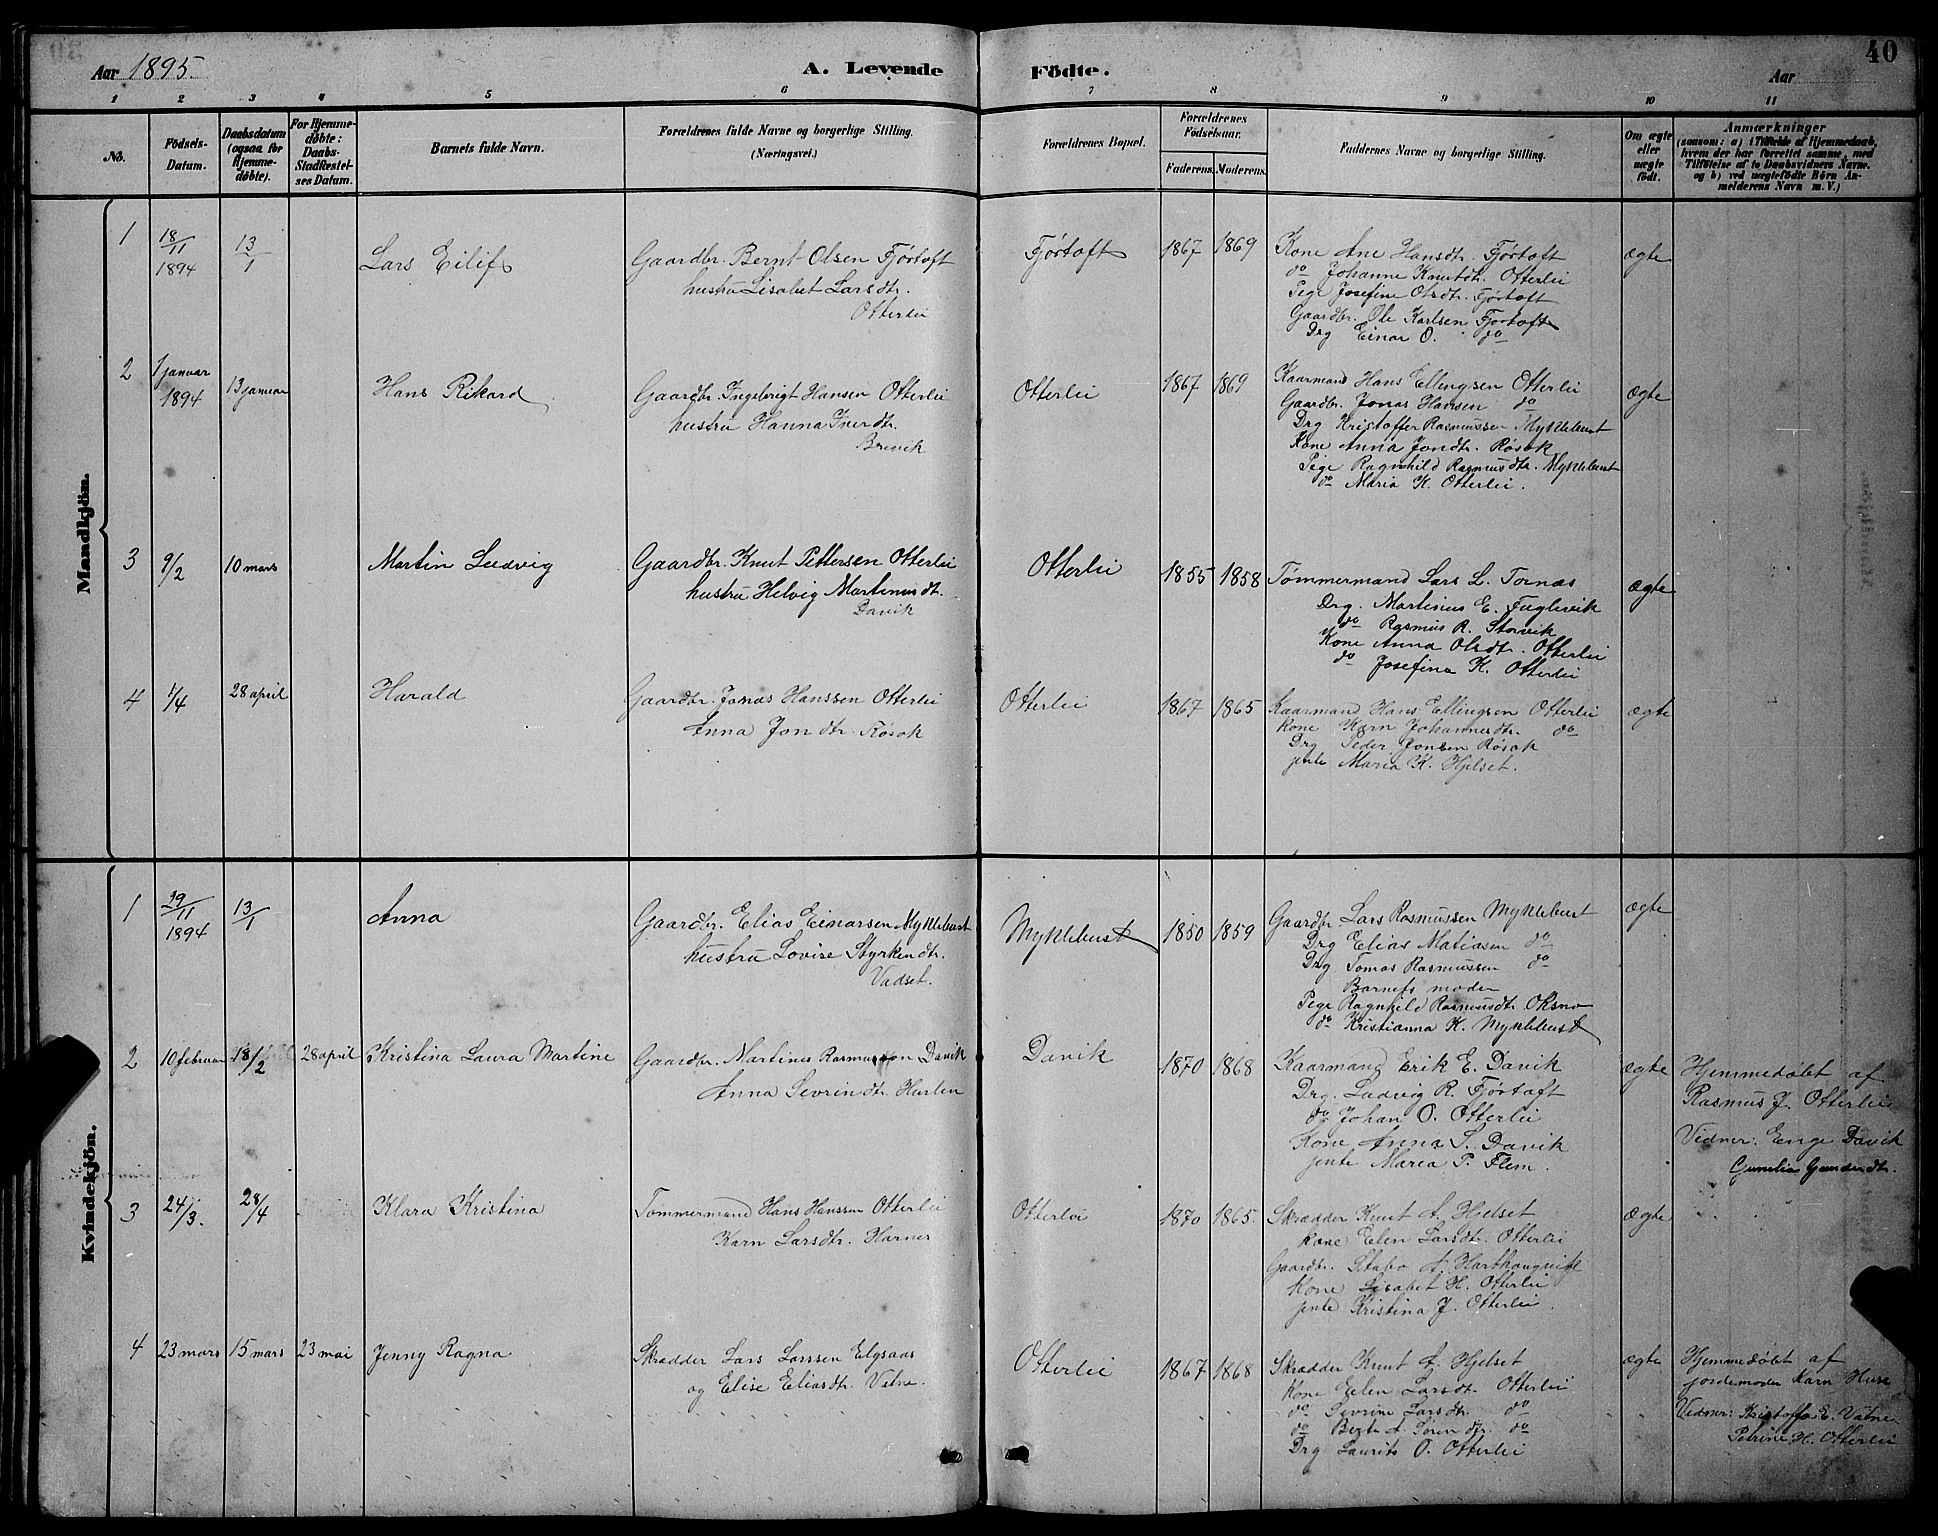 Aar 1895.
A. Levende Födte.
Aar
40
1 2 3 4 5 6 7 8 9 10 11
No.
Födsels-Datum.
Daabsdatum (ogsaa for Hjemme-döbte).
For Hjemme-döbte: Daabs-Stadfæstel-ses Datum.
Barnets fulde Navn.
Forældrenes fulde Navne og borgerlige Stilling. (Næringsvei.)
Forældrenes Bopæl.
Forældrenes Födselsaar.
Faderens. Moderens.
Faddernes Navne og borgerlige Stilling.
Om ægte eller uægte födt.
Anmærkninger
(saasom: a) i Tilfælde af Hjemmedaab, hvem der har forrettet samme, med Tilföielse af to Daabsvidners Navne. og b) ved uægtefödte Börn An-melderens Navn m. V.)
Mandkjön.
1 18/11 1894 13/1 Lars Eilif
Gaardbr. Bernt Olsen Fjørtoft
hustru Lisabet Larsdtr.
Otterlei
Fjørtoft 1867 1869
Kone Ane Hansdtr. Fjørtoft
do Johanne Knutdtr. Otterlei
Pege Josefine Olsdtr. Fjørtoft
Gaardbr. Ole Karlsen Fjørtoft
Drg Einar O. do
ægte
2 1 januar 1894 13 januar Hans Rikard
Gaardbr. Ingebrigt Hansen Otterlei
hustru Hanna Iverdtr.
Brevik
Otterlei 1867 1869
Kaarmand Hans Ellingsen Otterlei
Gaardbr. Jonas Hansen do
Drg Kristoffer Rasmussen Myklebust
Kone Anna Jondtr. Røsok
Pige Ragnhild Rasmusdtr. Myklebust
do Maria K. Otterlei.
ægte
3 9/2 10 mars Martin Ludvig
Gaardbr. Knut Pettersen Otterlei
hustru Helvig Martinusdt.
Davik
Otterlei 1855 1858
Tømmermand Lars L. Tornæs
Drg. Martinus E. Fuglevik
do Rasmus R. Storvik
Kone Anna Olsdtr. Otterlei
do Josefina K. Otterlei
ægte
4 1/4 28 april Harald
Gaardbr. Jonas Hanssen Otterlei
Anna Jondtr. Røsok
Otterlei 1867 1865
Kaarmand Hans Ellingsen Otterlei
Kone Karn Johannesdtr. do
Drg Peder Jonsen Røsok
jente Maria K. Hjelset.
ægte
Kvindekjön.
1 29/11 1894 13/1 Anna
Gaardbr. Elias Einarsen Myklebust
hustru Lovise Styrkendtr.
Vadset.
Myklebust 1850 1859
Gaardbr Lars Rasmussen Myklebust
Drg Elias Matiasen do
Drg Tomas Rasmussen do
Barnets moder
Pege Ragnhild Rasmusdtr Oksno
do Kristianna K. Myklebust
ægte
2 10 februar 18/2 28 april Kristina Laura Martine
Gaardbr. Martinus Rasmusson Davik
Anna Sevrindtr. Hurlen
Davik 1870 1868
Kaarmand Erik E. Davik
Drg. Ludvig R. Fjørtoft
do Johan O. Otterlei
Kone Anna S. Davik
jente Maria P. Flem.
ægte
Hjemmedøbt af
Rasmus J. Otterlei
Vidner: Enge Davik
Gunelia Gunderdt.
3 24/3. 28/4 Klara Kristina
Tømmermand Hans Hanssen Otterlei
Karn Larsdtr. Harnes
Otterlei 1870 1865.
Skrædder Knut A. Hjelset
Kone Elen Larsdtr. Otterlei
Gaardbr. A.
Kone Lisabet H. Otterlei
jente Kristina J. Otterlei.
ægte
4 23 mars 15 mars 23 mai Jenny Ragna
Skrædder Lars Larssen Elgsaas
og Elise Eliasdtr. Vatne.
Otterlei 1867 1868
Skrædder Knut A. Hjelset
Kone Elen Larsdt. Otterlei
do Sevrine Larsdtr do
do Berte A. Sørendtr. do
Drg Laurits O. Otterlei
ægte
Hjemmedøbt af
jordemoder Karn Huse
Vidner: Kristoffer E. Vatne
Petrine H. Otterlei